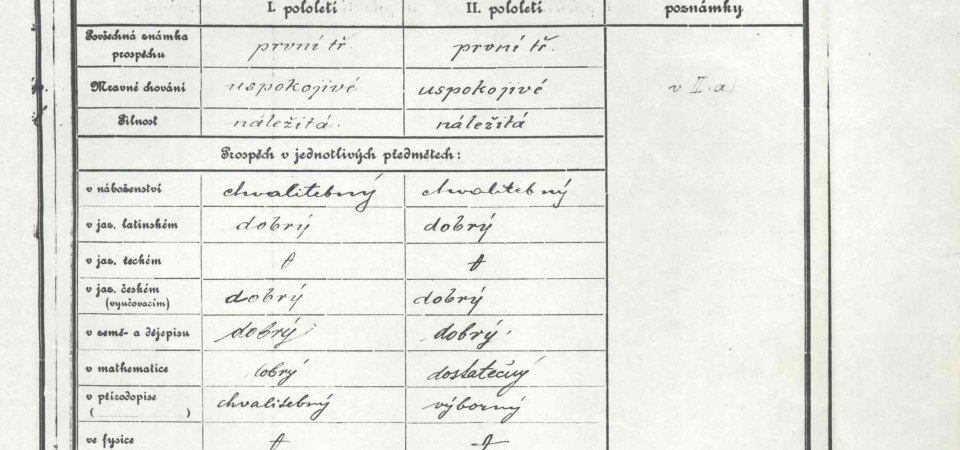 I. pololetí II. pololetí poznámky
Všechná známka prospěchu první tř. první tř.
Mravné chování uspokojivé uspokojivé v I. a)
Pilnost náležitá. náležitá
Prospěch v jednotlivých předmětech:
v náboženství chvalitebný chvalitebný
v jaz. latinském dobrý dobrý
v jaz. řeckém
v jaz. českém dobrý dobrý
(vyučovacím)
v země- a dějepisu dobrý dobrý
v mathematice dobrý dostatečný
v přírodopise chvalitebný výborný
( )
ve fysice